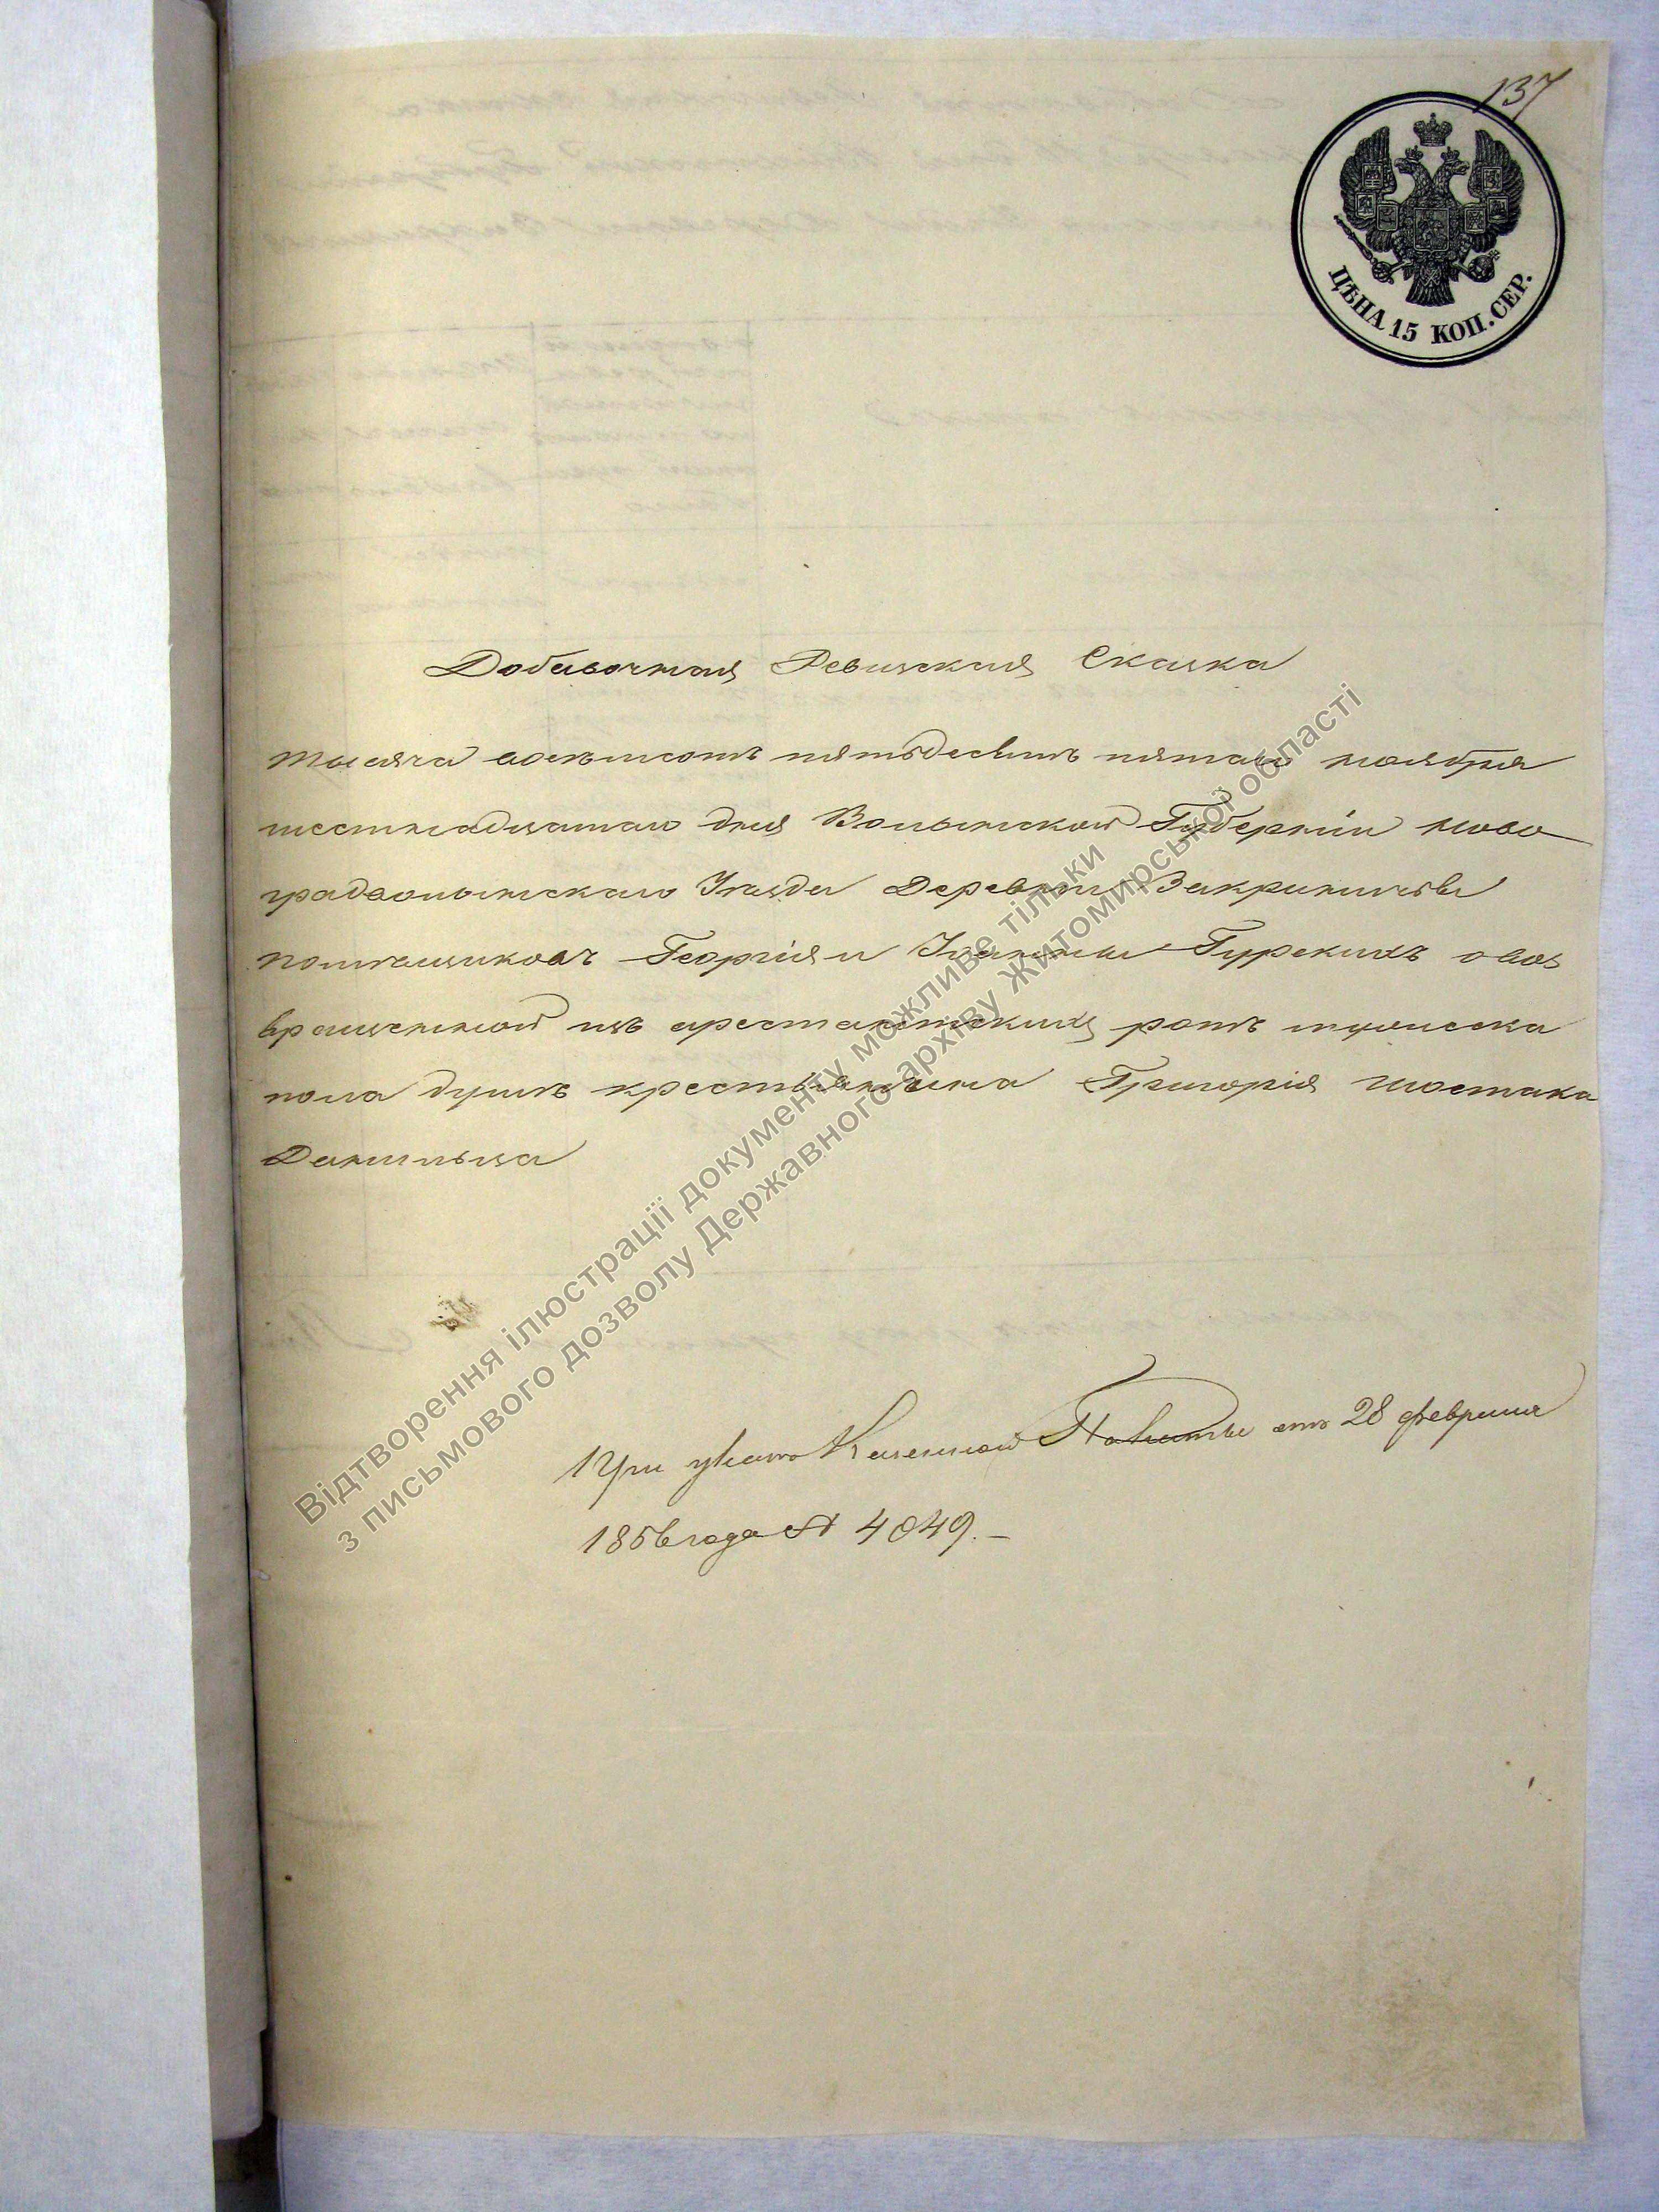 137
ЦѢНА 15 КОП. СЕР.
Добавочная Ревизская Сказка
тысяча восемьсотъ пятьдесятъ пятаго ноября
шестнадцатаго дня Волынской Губерніи Ново
градволынскаго Уезда Деревни Закриничья
помѣщиковъ Георгія и Іванны Гурскихъ о воз
вращенной изъ арестантскихъ ротъ мужеска
пола душѣ крестьянина Григорія Шостака
Данильца
При указѣ Казенной Палаты отъ 28 февраля
1856 года № 4049.
Відтворення ілюстрації документу можливе тільки
з письмового дозволу Державного архіву Житомирської області